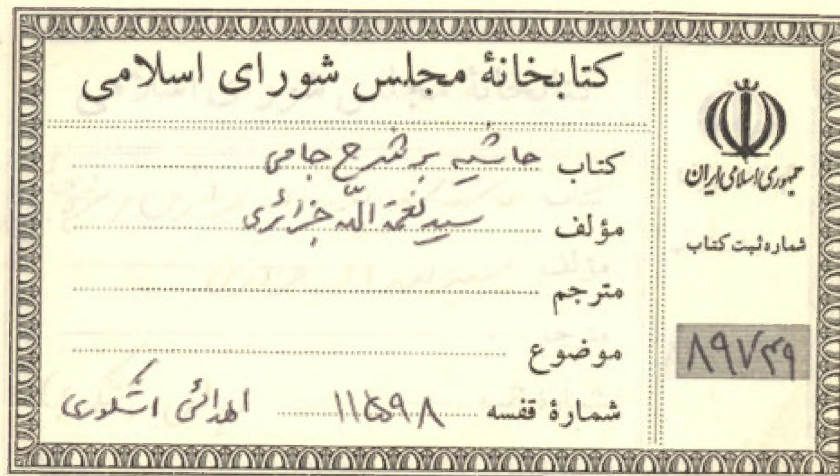 کتابخانهٔ مجلس شورای اسلامی
کتاب حاشیه بر شرح جامی
مؤلف سید نعمة الله جزائری
مترجم
موضوع
شمارهٔ قفسه ۱۱۵۹۸ اهدائی اشکوری
جمهوری اسلامی ایران
شماره ثبت کتاب
۸۹۷۴۹